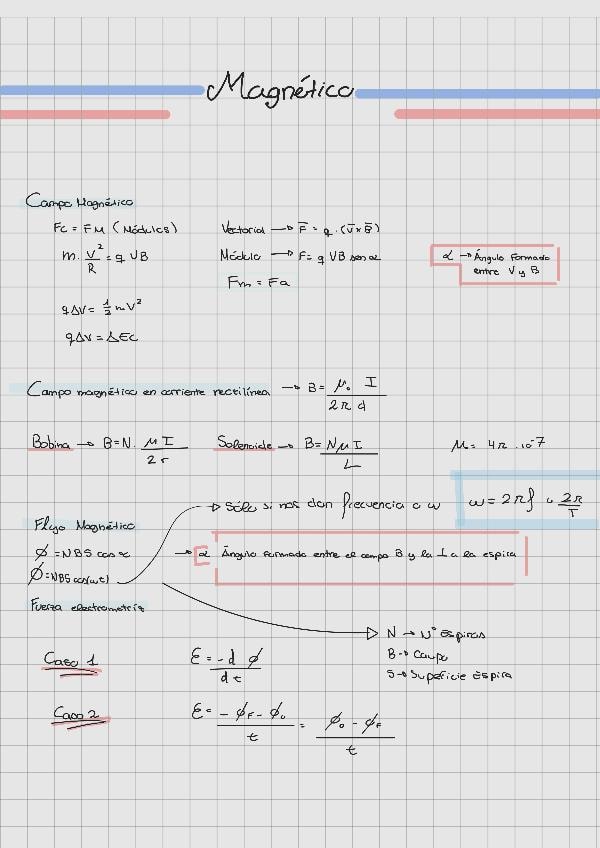 Magnético
Campo Magnético
Fc = FM (Módulos)
Vectorial → F̅ = q · (v̅ x B̅)
m · V²/R = q VB
Módulo → F = q VB sen α
α → Ángulo formado
entre V y B
Fm = Fa
qΔV = ½ mV²
qΔV = ΔEc
Campo magnético en corriente rectilínea → B = μ₀ I / 2π d
Bobina → B = N · μ I / 2r
Solenoide → B = NμI / L
μ = 4π · 10⁻⁷
→ Sólo si nos dan frecuencia o ω
ω = 2πf o 2π/T
Flujo Magnético
ϕ = NBS cos α
→ α Ángulo formado entre el campo B y la ⊥ a la espira
ϕ = NBS cos(ωt)
Fuerza electrometriz
N → Nº Espiras
B → Campo
S → Superficie Espira
Caso 1
ε = -d ϕ / dt
Caso 2
ε = - ϕF - ϕ₀ / t = ϕ₀ - ϕF / t